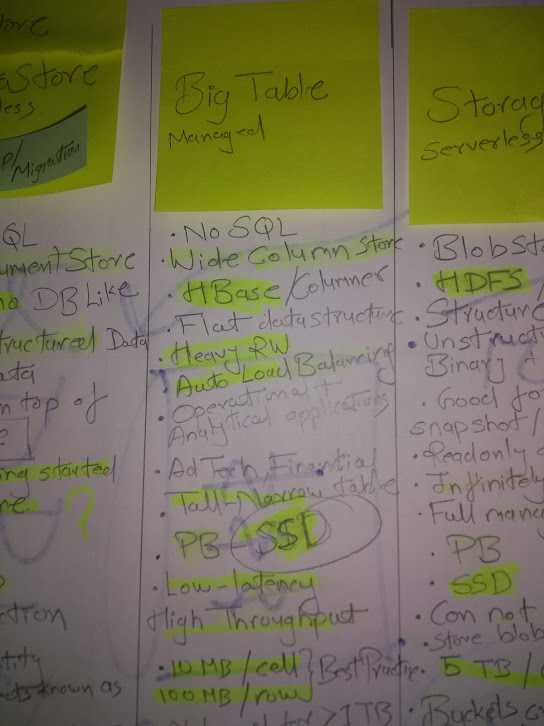 Store
aStore
less
P/Migration
QL
ument Store
no DB Like
tructured Data
ata
n top of
?
ing started
ne.
?
ction
tity
ects known as
Big Table
Managed
• No SQL
• Wide Column Store
• HBase/Columner
• Flat datastructure
• Heavy RW
• Auto Load Balancing
• Operational +
Analytical applications
• AdTech, Financial
• Tall-Narrow table
• PB - SSD
• Low-latency
High Throughput
• 10 MB/cell } Best Practice
100 MB/row
> 1 TB
Storag
Serverless
• Blob Sto
• HDFS
• Structure
• Unstruct
Binary +
• Good for
snapshot/
• Readonly
• Infinitely
• Full mana
• PB
• SSD
• Can not
• Store blob
• 5 TB/
• Buckets